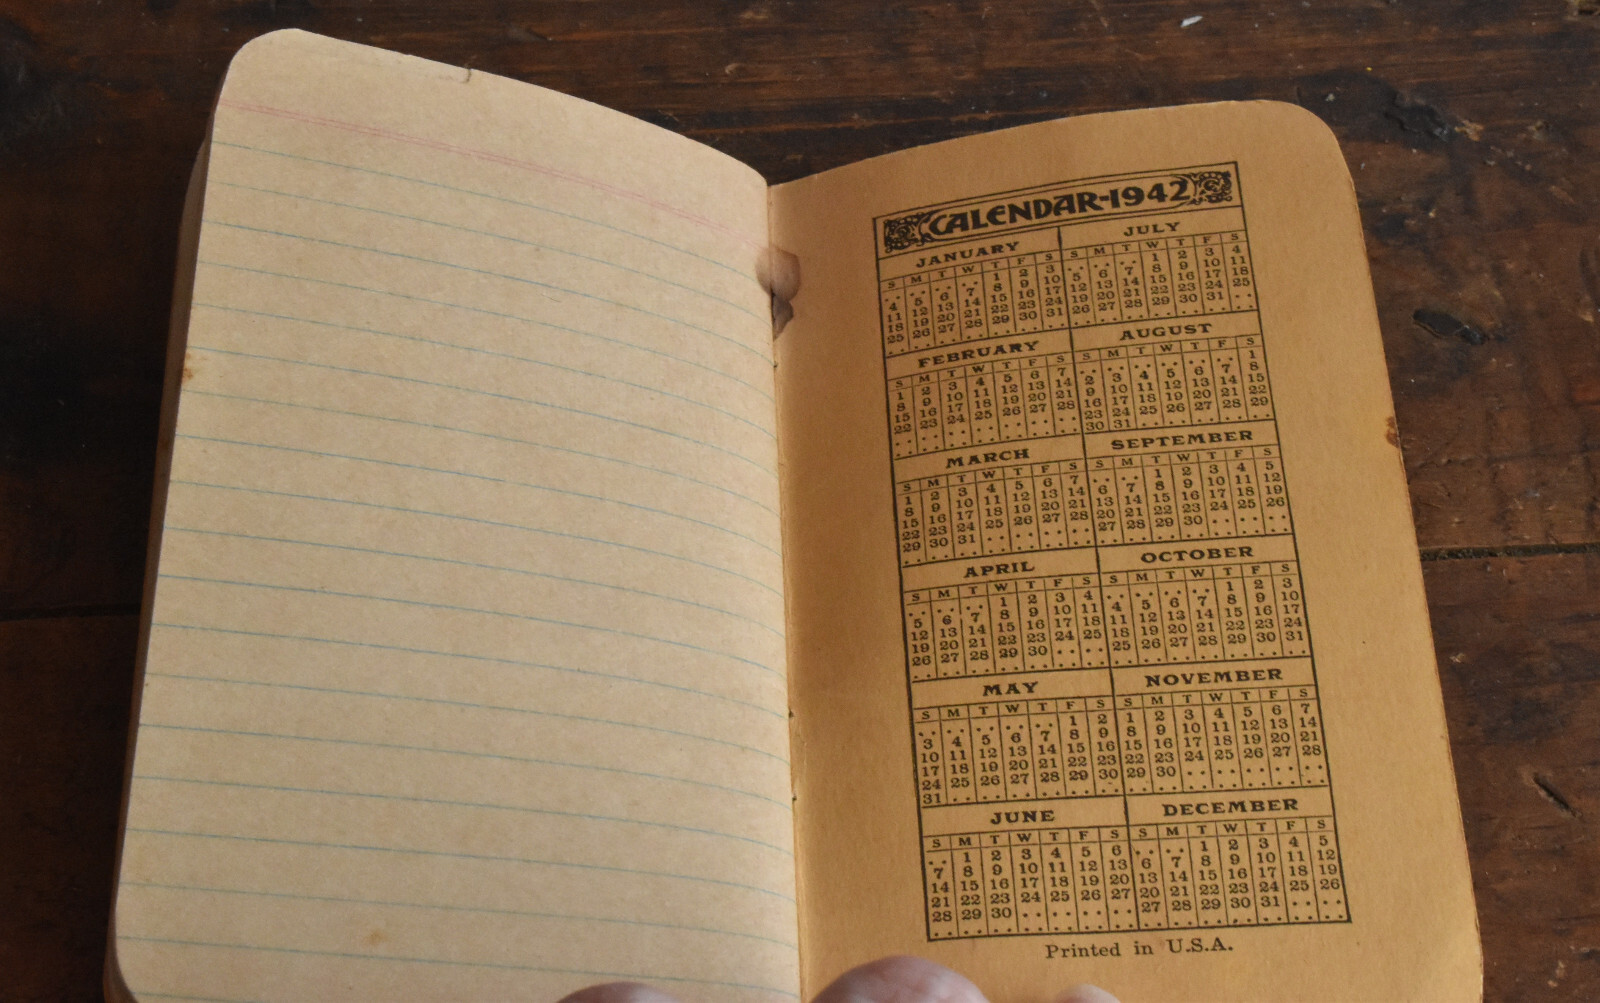 CALENDAR-1942
JANUARY
S M T W T F S
. . . . . . . . 1 2 3
4 5 6 7 8 9 10
11 12 13 14 15 16 17
18 19 20 21 22 23 24
25 26 27 28 29 30 31
FEBRUARY
S M T W T F S
1 2 3 4 5 6 7
8 9 10 11 12 13 14
15 16 17 18 19 20 21
22 23 24 25 26 27 28
MARCH
S M T W T F S
1 2 3 4 5 6 7
8 9 10 11 12 13 14
15 16 17 18 19 20 21
22 23 24 25 26 27 28
29 30 31
APRIL
S M T W T F S
1 2 3 4
5 6 7 8 9 10 11
12 13 14 15 16 17 18
19 20 21 22 23 24 25
26 27 28 29 30
MAY
S M T W T F S
1 2
3 4 5 6 7 8 9
10 11 12 13 14 15 16
17 18 19 20 21 22 23
24 25 26 27 28 29 30
31
JUNE
S M T W T F S
1 2 3 4 5 6
7 8 9 10 11 12 13
14 15 16 17 18 19 20
21 22 23 24 25 26 27
28 29 30
JULY
S M T W T F S
1 2 3 4
5 6 7 8 9 10 11
12 13 14 15 16 17 18
19 20 21 22 23 24 25
26 27 28 29 30 31
AUGUST
S M T W T F S
1
2 3 4 5 6 7 8
9 10 11 12 13 14 15
16 17 18 19 20 21 22
23 24 25 26 27 28 29
30 31
SEPTEMBER
S M T W T F S
1 2 3 4 5
6 7 8 9 10 11 12
13 14 15 16 17 18 19
20 21 22 23 24 25 26
27 28 29 30
OCTOBER
S M T W T F S
1 2 3
4 5 6 7 8 9 10
11 12 13 14 15 16 17
18 19 20 21 22 23 24
25 26 27 28 29 30 31
NOVEMBER
S M T W T F S
1 2 3 4 5 6 7
8 9 10 11 12 13 14
15 16 17 18 19 20 21
22 23 24 25 26 27 28
29 30
DECEMBER
S M T W T F S
1 2 3 4 5
6 7 8 9 10 11 12
13 14 15 16 17 18 19
20 21 22 23 24 25 26
27 28 29 30 31
Printed in U.S.A.